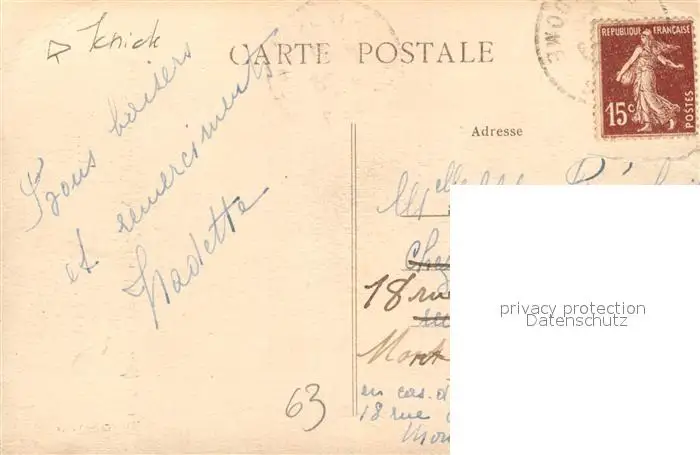 Knick
CARTE POSTALE
RÉPUBLIQUE FRANÇAISE
15c
POSTES
Adresse
Bons baisers
et remerciments
Nadette
Melle
Chez
18 rue
Mont
en cas d
18 rue
Mon
63
privacy protection
Datenschutz